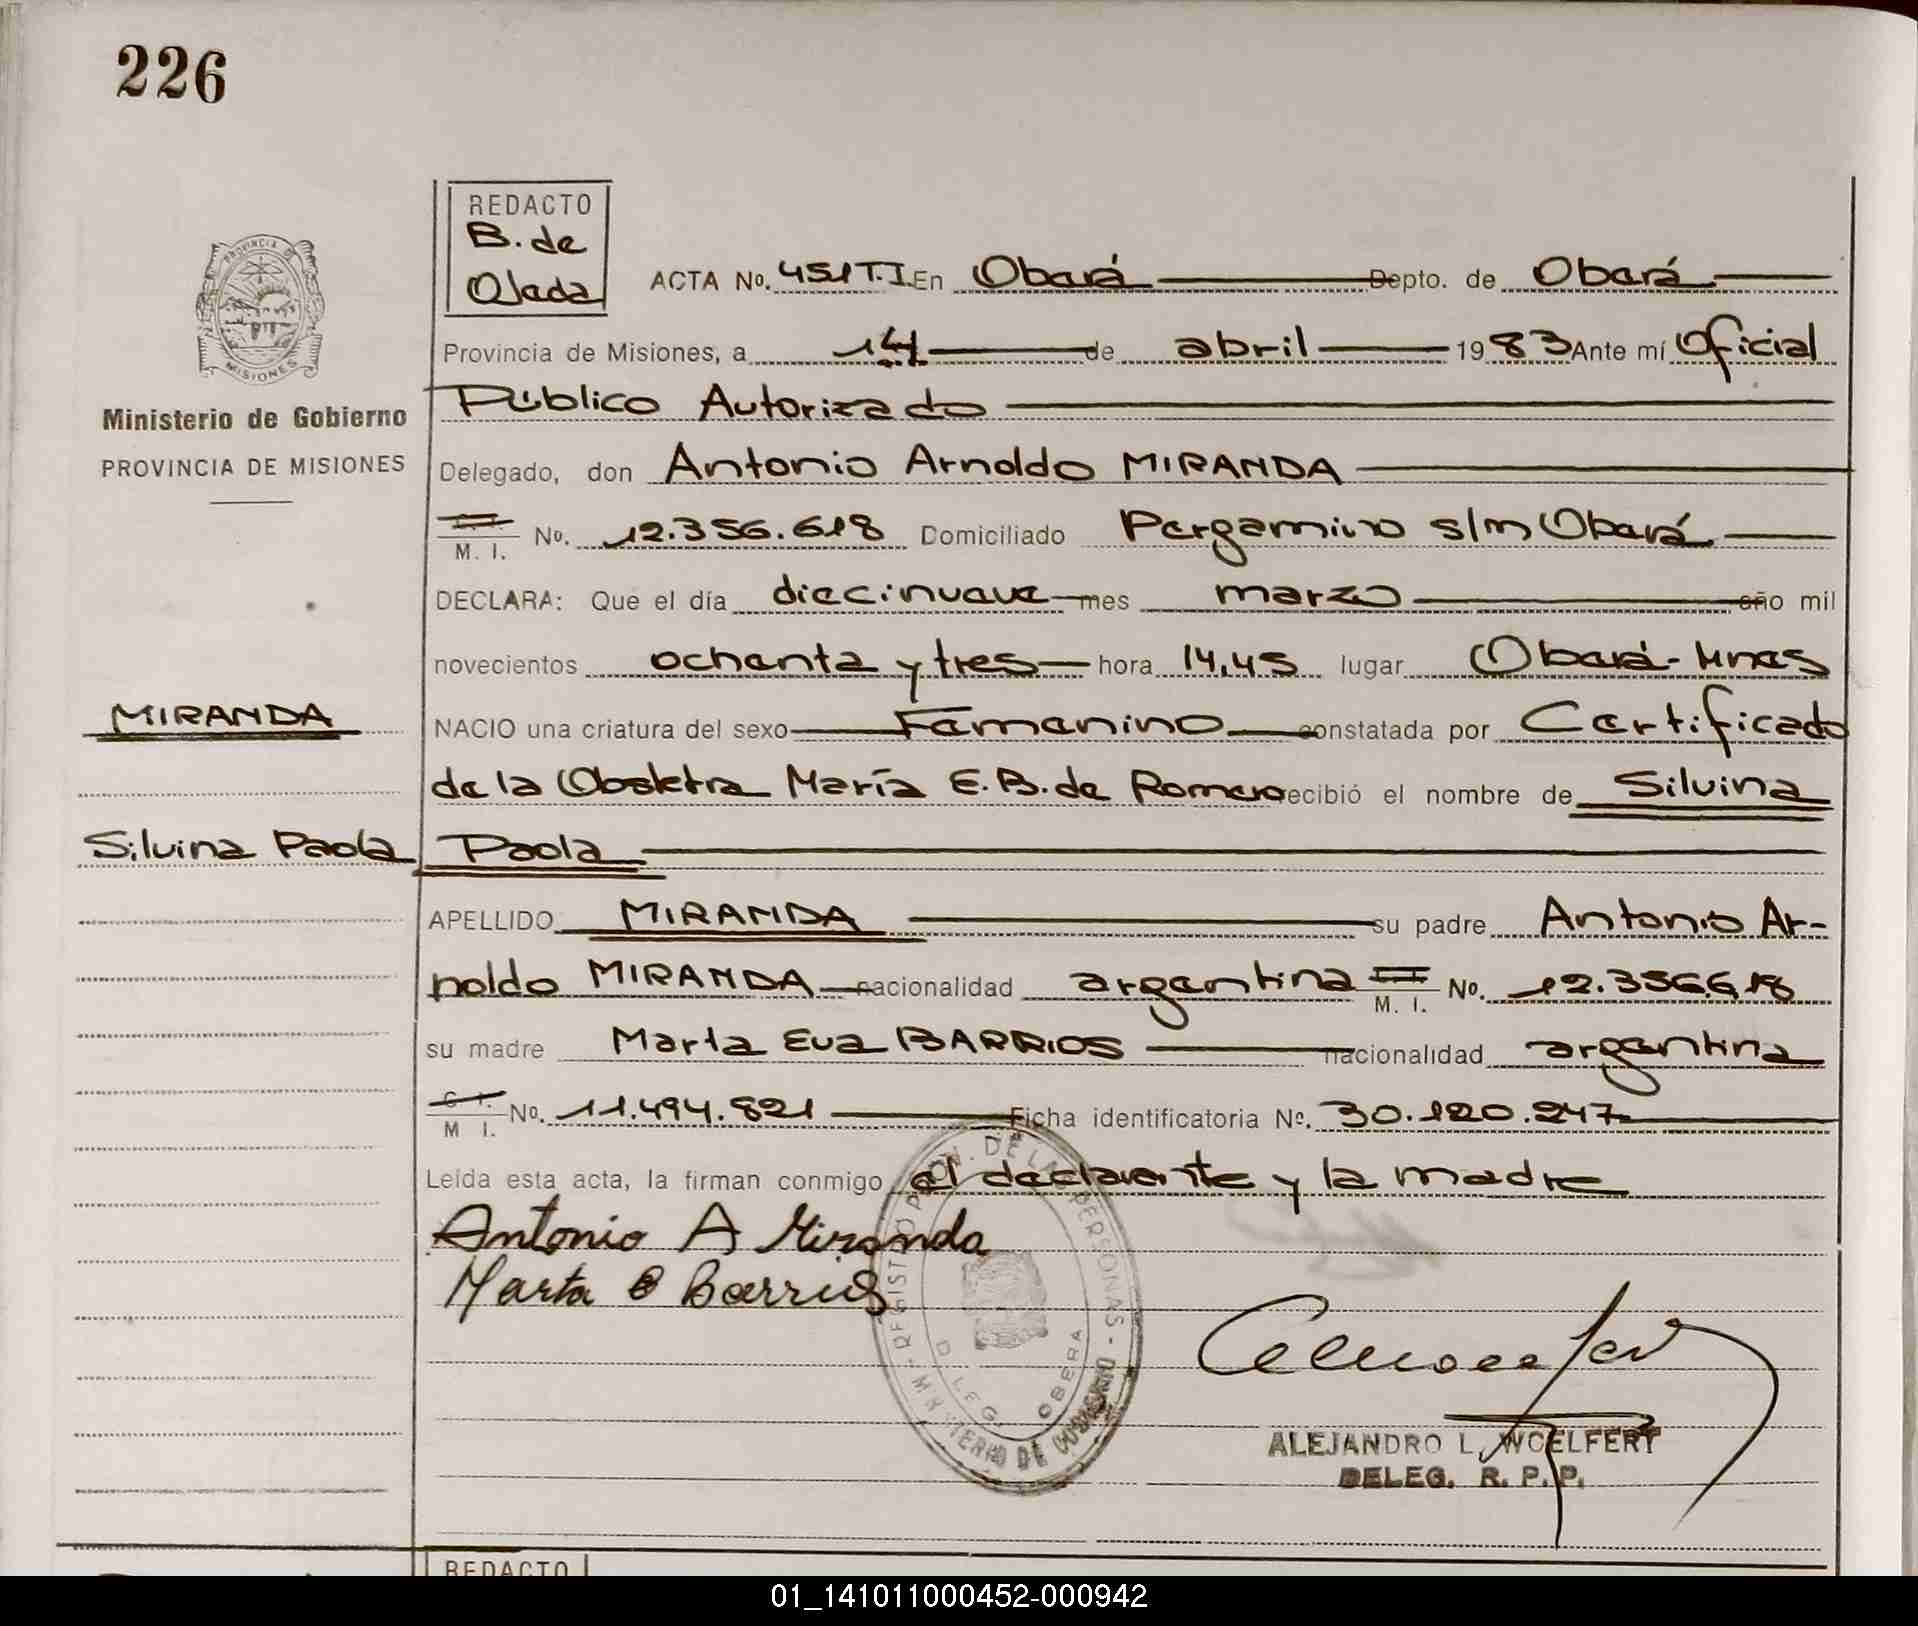 226
REDACTO
B. de
Ojeda
ACTA No. 451 T.I En Oberá Depto. de Oberá
Provincia de Misiones, a 14 de abril 1983 Ante mí Oficial
Público Autorizado
PROVINCIA DE
MISIONES
Ministerio de Gobierno
PROVINCIA DE MISIONES
Delegado, don Antonio Arnoldo MIRANDA
M. I. No. 12.356.618 Domiciliado Pergamino s/n Oberá
DECLARA: Que el día diecinueve mes marzo año mil
novecientos ochenta y tres hora 14,45 lugar Oberá - Mnes
MIRANDA
NACIO una criatura del sexo Femenino constatada por Certificado
de la Obstetra María E. B. de Romero recibió el nombre de Silvina
Silvina Paola
Paola
APELLIDO MIRANDA su padre Antonio Ar-
noldo MIRANDA nacionalidad argentina M. I. No. 12.356.618
su madre Marta Eva BARRIOS nacionalidad argentina
C. I. M I. No. 11.494.821 Ficha identificatoria No. 30.120.247
Leída esta acta, la firman conmigo el declarante y la madre
Antonio A Miranda
Marta E Barrios
DE LAS PERSONAS
OBERA
ALEJANDRO L. WOELFERT
DELEG. R. P. P.
REDACTO
01_141011000452-000942